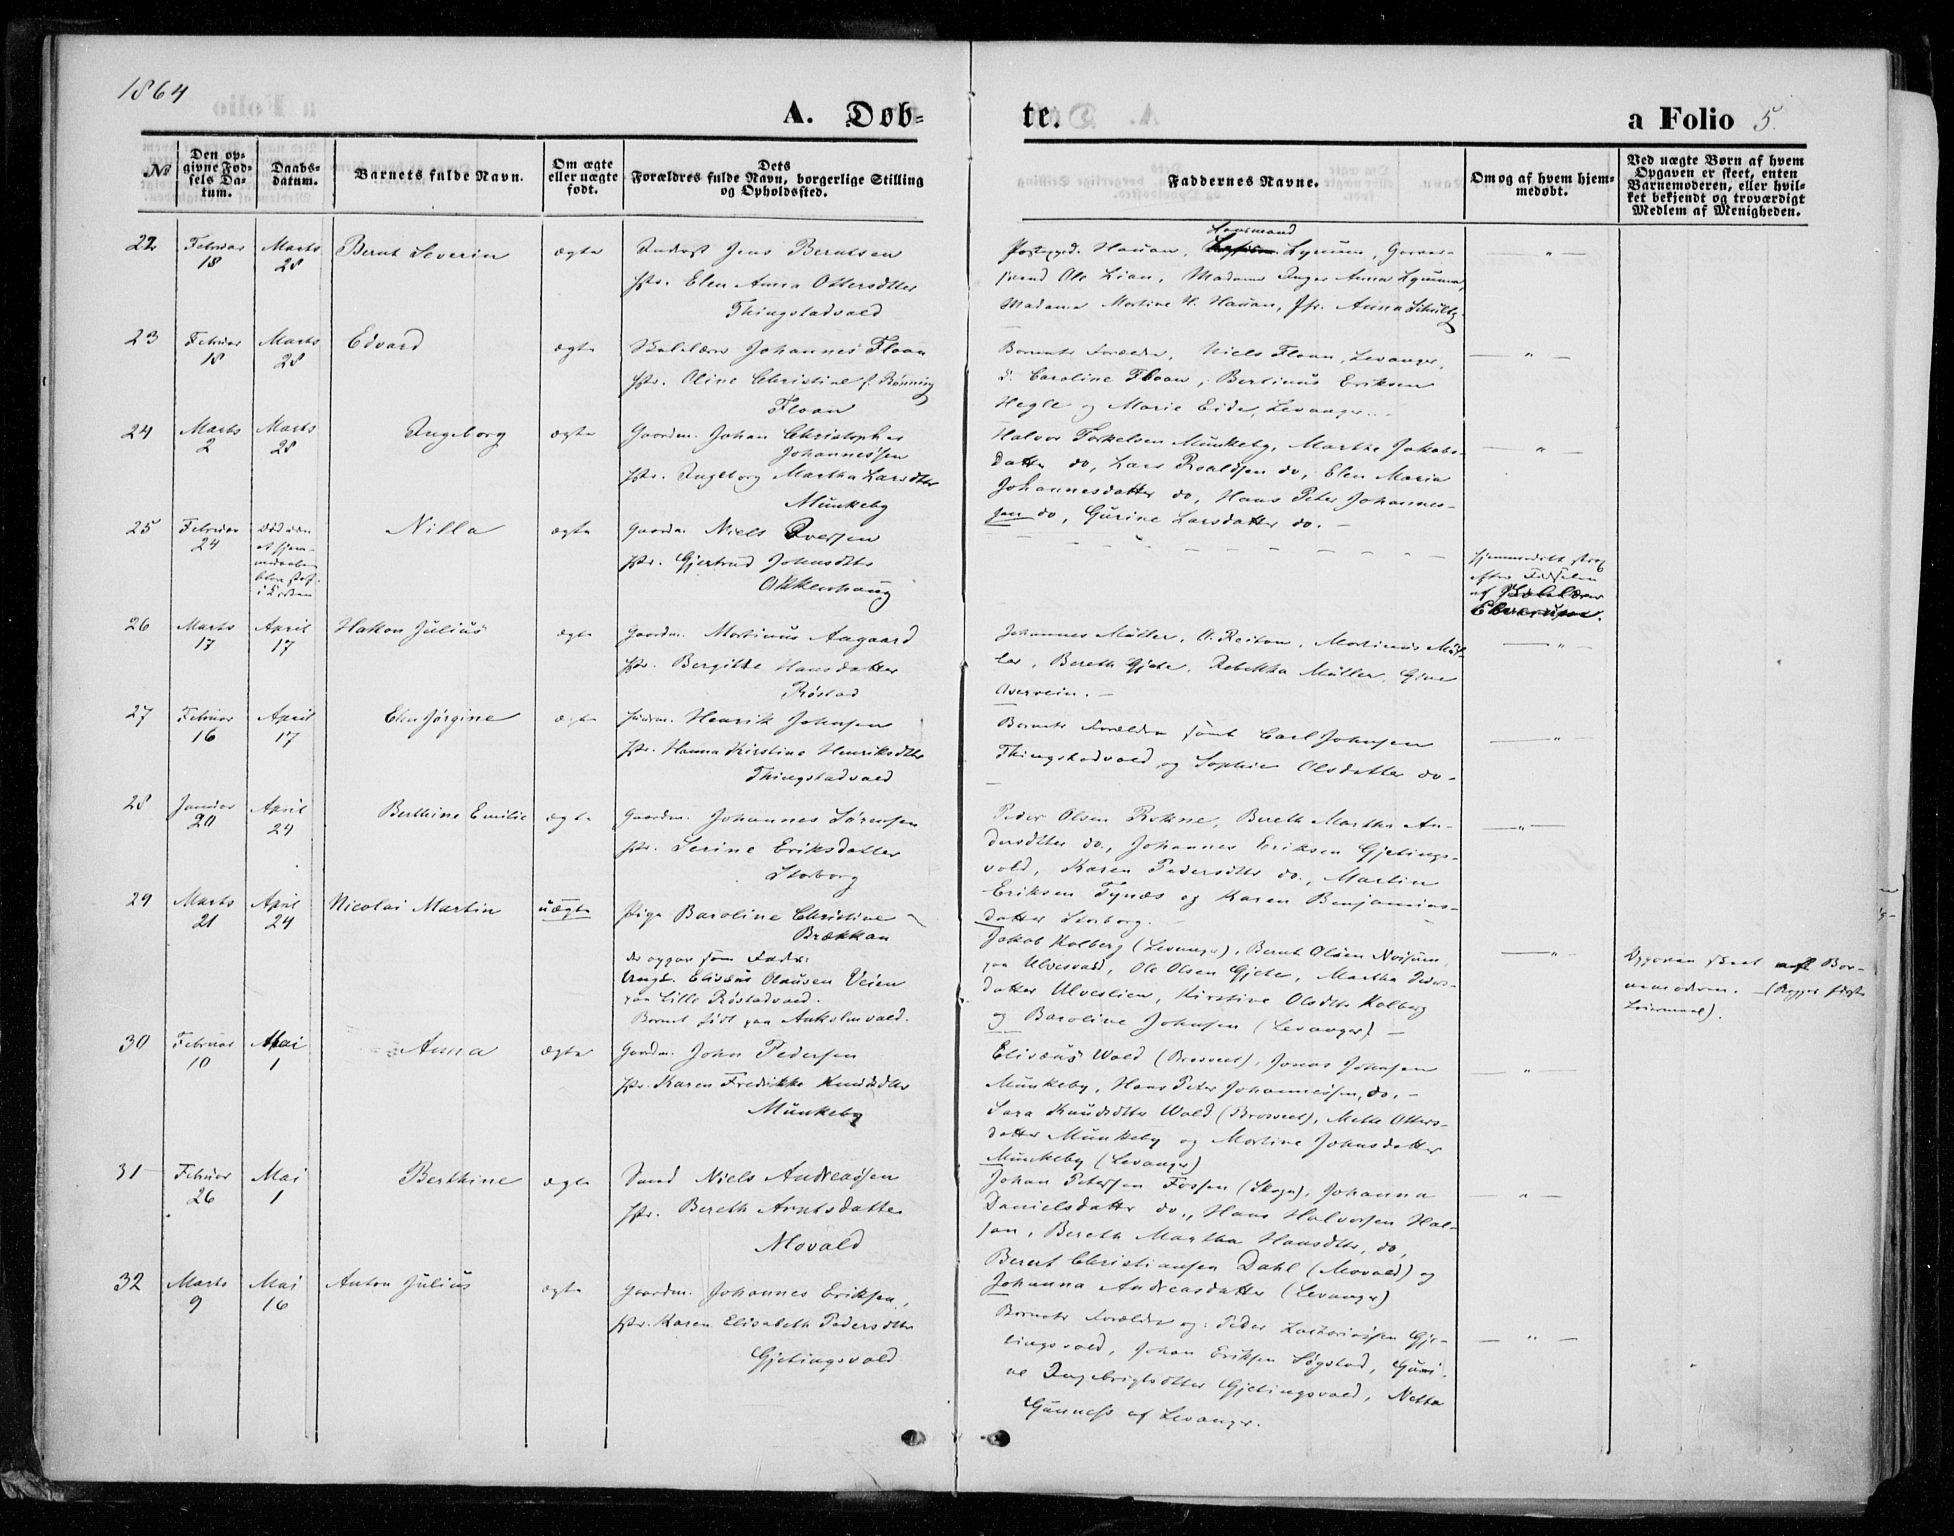 1864
A. Døb-
te.
a Folio 5.
№
Den op-
givne Fød-
sels Da-
tum.
Daabs-
datum.
Barnets fulde Navn.
Om ægte
eller uægte
født.
Dets
Forældres fulde Navn, borgerlige Stilling
og Opholdssted.
Faddernes Navne.
Om og af hvem hjem-
medøbt.
Ved uægte Børn af hvem
Opgaven er skeet, enten
Barnemoderen, eller hvil-
ket bekjendt og troværdigt
Medlem af Menigheden.
22
Februar
18
Marts
28
Bernt Severin
ægte
Jens Berntsen
Elen Anna Ottersdtter
Thingstadvald
Huusmand
Hauan, Lynum,
Ole Lian, Madame Inger Anna Lynum,
Madame Martine H. Hauan, Jfr. Anna Schultz
23
Februar
18
Marts
28
Edvard
ægte
Skolelærer Johannes Floan
Hstr. Oline Christine f. Rönning
Floan
Barnets Forældre, Niels Floan, Levanger,
Caroline Floan, Bertinus Eriksen
Hegle og Marie Eide, Levanger.
24
Marts
2
Marts
28
Ingeborg
ægte
Gaardm. Johan Christopher
Johannessen
Hstr. Ingeborg Martha Larsdtter
Munkeby
Halvor Torkelsen Munkeby, Marthe Jakobs-
datter do, Lars Roaldsen do, Elen Maria
Johannesdatter do, Hans Peter Johannes-
sen do, Gurine Larsdatter do. –
25
Februar
24
Nilla
ægte
Gaardm. Niels Iversen
Hstr. Gjertrud Johnsdtter
Okkenhaug
Hjemmedøbt strax
efter Fødselen
af
26
Marts
17
April
17
Hakon Julius
ægte
Gaardm. Martinus Aagaard
Hstr. Bergitte Hansdatter
Röstad
Johannes Müller, O. Reitan, Martinus Mül-
ler, Bereth Gjete, Rebekka Müller, Gine
27
Februar
16
April
17
Elen Jørgine
ægte
Huusm. Henrik Johnsen
Hstr. Hanna Kirstine Henriksdtter
Thingstadvald
Barnets Forældre samt Carl Johnsen
Thingstadvald og Sophie Olsdatter do –
28
Januar
20
April
24
Berthine Emilie
ægte
Gaardm. Johannes Sørensen
Hstr. Serine Eriksdatter
Storborg
Peder Olsen Rohne, Bereth Martha An-
dersdtter do., Johannes Eriksen Gjetings-
vold, Karen Pedersdtter do., Martin
Eriksen Tynæs og Karen Benjamins-
datter Storborg.
29
Marts
21
April
24
Nicolai Martin
uægte
Pige Baroline Christine
Brækkan
der opgav som Fader:
Ungk. Elisæus Olausen Veien
paa Lille Röstadvald.
Barnet født paa
Jakob Kolberg (Levanger), Bernt Olsen
paa Ulvesvald, Ole Olsen Gjete, Martha Peders-
datter Ulveslien, Kirstine Olsdtter Kolberg
og Baroline Johnsen (Levanger) –
Opgaven skeet af Bar-
nemoderen. – (Begges første
Leiermaal).
30
Februar
10
Mai
1
Anna
ægte
Gaardm. John Pedersen
Hstr. Karen Fredrikke Knudsdtter
Munkeby
Elisæus Wold, Jonas Johnsen
Munkeby, Hans Peter Johannessen, do. –
Sara Knudsdtter Wold, Mette Otters-
datter Munkeby og Martine Johnsdatter
Munkeby (Levanger)
31
Februar
26
Mai
1
Berthine
ægte
Niels Andreassen
Hstr. Bereth Arntsdatter
Movald
Johan Petersen Fossen (Skogn), Johanna
Danielsdatter do., Hans Halvorsen Hal-
san, Bereth Martha Hansdtter, do,
Bernt Christiansen Dahl (Movald) og
Johanna Andreasdatter (Levanger)
32
Marts
9
Mai
16
Anton Julius
ægte
Gaardm. Johannes Eriksen,
Hstr. Karen Elisabeth Pedersdtter
Gjetingsvold
Barnets Forældre og: Peder Zachariassen Gje-
tingsvold, Johan Eriksen Søgstad, Guri-
ne Ingebrigtsdtter Gjetingsvold, Netta
Gunness af Levanger.